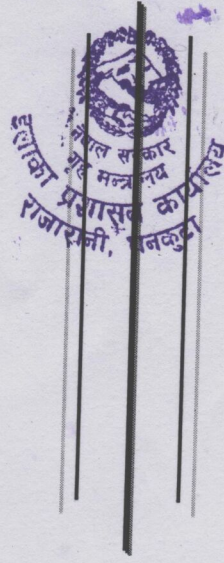 नेपाल सरकार
गृह मन्त्रालय
इलाका प्रशासन कार्यालय
राजारानी, धनकुटा